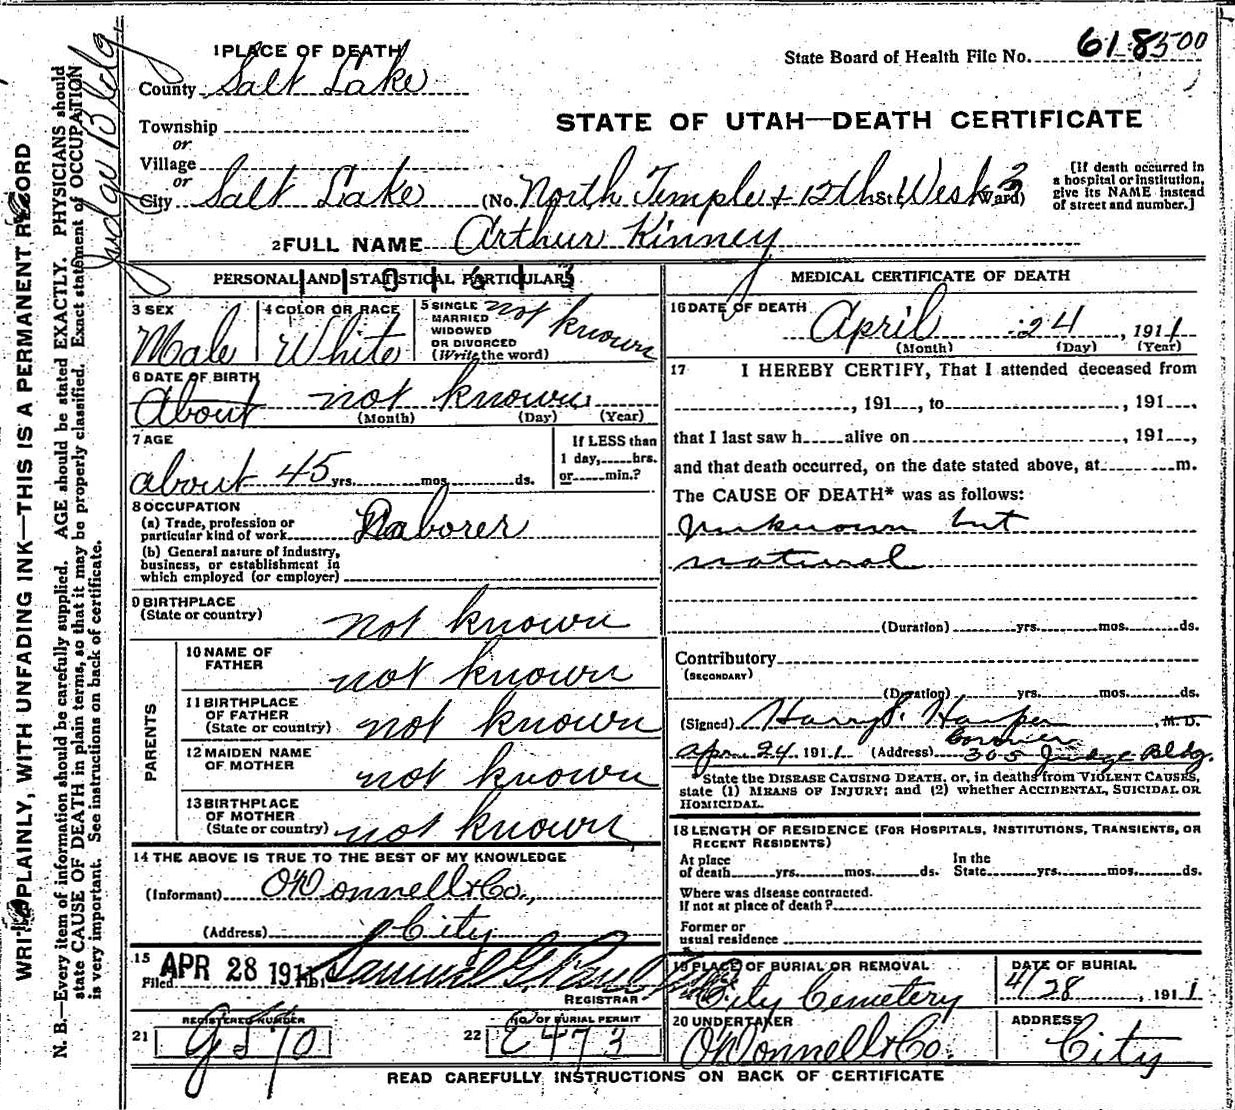 1 PLACE OF DEATH
State Board of Health File No. 618500
County Salt Lake
STATE OF UTAH—DEATH CERTIFICATE
Township
or
Village
or
City Salt Lake (No. North Temple & 12th St. West 2 Ward)
[If death occurred in
a hospital or institution,
give its NAME instead
of street and number.]
2 FULL NAME Arthur Kinney
PERSONAL AND STATISTICAL PARTICULARS
3 SEX
Male
4 COLOR OR RACE
White
5 SINGLE
MARRIED
WIDOWED
OR DIVORCED
(Write the word)
not known
6 DATE OF BIRTH
About not known
(Month) (Day) (Year)
7 AGE
about 45 yrs. mos. ds.
If LESS than
1 day, hrs.
or min.?
8 OCCUPATION
(a) Trade, profession or
particular kind of work Laborer
(b) General nature of industry,
business, or establishment in
which employed (or employer)
9 BIRTHPLACE
(State or country) not known
PARENTS
10 NAME OF
FATHER not known
11 BIRTHPLACE
OF FATHER
(State or country) not known
12 MAIDEN NAME
OF MOTHER not known
13 BIRTHPLACE
OF MOTHER
(State or country) not known
14 THE ABOVE IS TRUE TO THE BEST OF MY KNOWLEDGE
(Informant) O'Donnell & Co.,
(Address) City
15
Filed APR 28 1911 Samuel G. Paul
REGISTRAR
REGISTERED NUMBER
21 G570
NO. OF BURIAL PERMIT
22 E473
MEDICAL CERTIFICATE OF DEATH
16 DATE OF DEATH
April 24, 1911
(Month) (Day) (Year)
17 I HEREBY CERTIFY, That I attended deceased from
, 191 , to , 191 ,
that I last saw h alive on , 191 ,
and that death occurred, on the date stated above, at m.
The CAUSE OF DEATH* was as follows:
unknown but
natural
(Duration) yrs. mos. ds.
Contributory
(SECONDARY)
(Duration) yrs. mos. ds.
(Signed) Harry S. Harper , M. D.
Coroner
Apr 24 1911 (Address) 305 Judge Bldg.
*State the DISEASE CAUSING DEATH, or, in deaths from VIOLENT CAUSES,
state (1) MEANS OF INJURY; and (2) whether ACCIDENTAL, SUICIDAL OR
HOMICIDAL.
18 LENGTH OF RESIDENCE (FOR HOSPITALS, INSTITUTIONS, TRANSIENTS, OR
RECENT RESIDENTS)
At place
of death yrs. mos. ds.
In the
State yrs. mos. ds.
Where was disease contracted.
If not at place of death?
Former or
usual residence
19 PLACE OF BURIAL OR REMOVAL
City Cemetery
DATE OF BURIAL
4/28, 1911
20 UNDERTAKER
O'Donnell & Co.
ADDRESS
City
READ CAREFULLY INSTRUCTIONS ON BACK OF CERTIFICATE
WRITE PLAINLY, WITH UNFADING INK—THIS IS A PERMANENT RECORD
N. B.—Every item of information should be carefully supplied. AGE should be stated EXACTLY. PHYSICIANS should
state CAUSE OF DEATH in plain terms, so that it may be properly classified. Exact statement of OCCUPATION
is very important. See instructions on back of certificate.
Judge Bldg